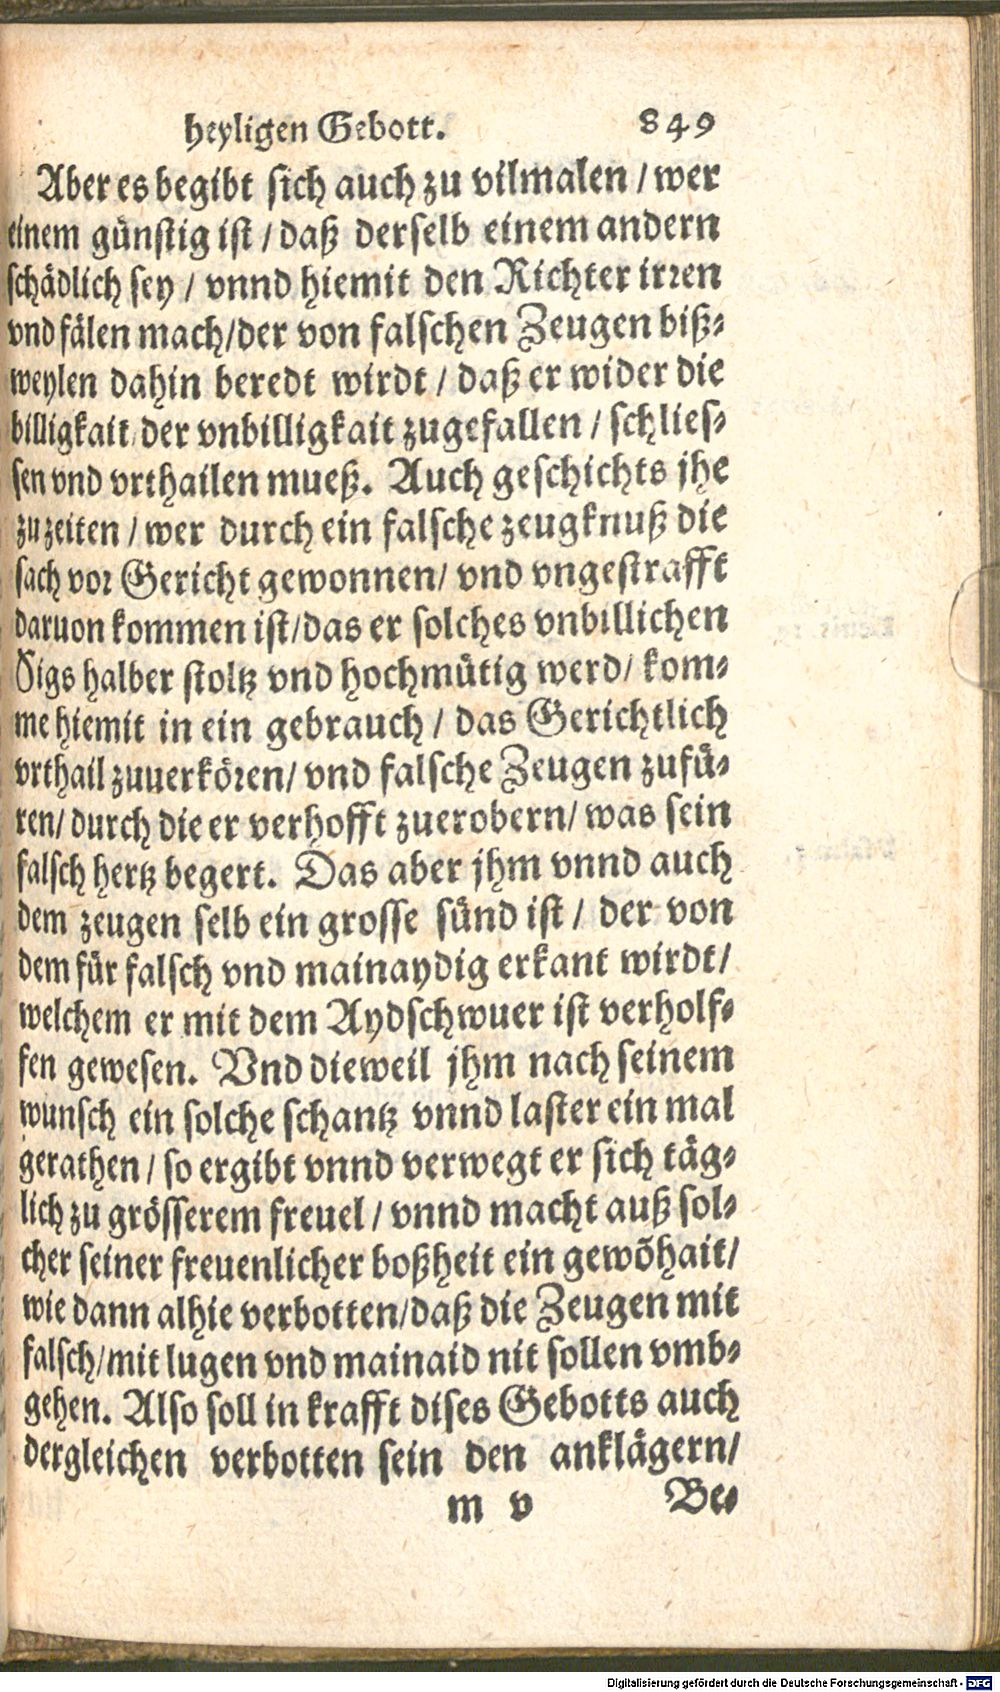 heyligen Gebott. 849
Aber es begibt sich auch zu vilmalen / wer
einem günstig ist / daß derselb einem andern
schädlich sey / vnnd hiemit den Richter irren
vnd fälen mach/der von falschen Zeugen biß-
weylen dahin beredt wirdt / daß er wider die
billigkait der vnbilligkait zugefallen / schlies-
sen vnd vrthailen mueß. Auch geschichts jhe
zuzeiten / wer durch ein falsche zeugknuß die
sach vor Gericht gewonnen/ vnd vngestrafft
daruon kommen ist/das er solches vnbillichen
Sigs halber stoltz vnd hochmütig werd/ kom-
me hiemit in ein gebrauch / das Gerichtlich
vrthail zuuerkören/ vnd falsche Zeugen zufü-
ren/ durch die er verhofft zuerobern/ was sein
falsch hertz begert. Das aber jhm vnnd auch
dem zeugen selb ein grosse sünd ist / der von
dem für falsch vnd mainaydig erkant wirdt/
welchem er mit dem Aydschwuer ist verholf-
fen gewesen. Vnd dieweil jhm nach seinem
wunsch ein solche schantz vnnd laster ein mal
gerathen / so ergibt vnnd verwegt er sich täg-
lich zu grösserem freuel / vnnd macht auß sol-
cher seiner freuenlicher boßheit ein gewöhait/
wie dann alhie verbotten/daß die Zeugen mit
falsch/mit lugen vnd mainaid nit sollen vmb-
gehen. Also soll in krafft dises Gebotts auch
dergleichen verbotten sein den anklägern/
m v Be-
Digitalisierung gefördert durch die Deutsche Forschungsgemeinschaft - DFG